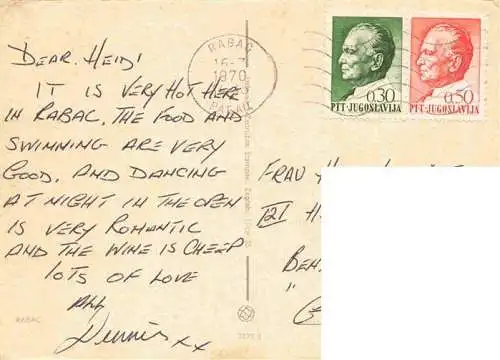 DEAR HEIDI
IT IS VERY HOT HERE
IN RABAC, THE FOOD AND
SWIMMING ARE VERY
GOOD, AND DANCING
AT NIGHT IN THE OPEN
IS VERY ROMANTIC
AND THE WINE IS CHEEP
LOTS OF LOVE
Dennis xx
RABAC
RABAC
1970
0.30
PTT-JUGOSLAVIJA
0.50
PTT-JUGOSLAVIJA
FRAU H
121 H
BEH
"